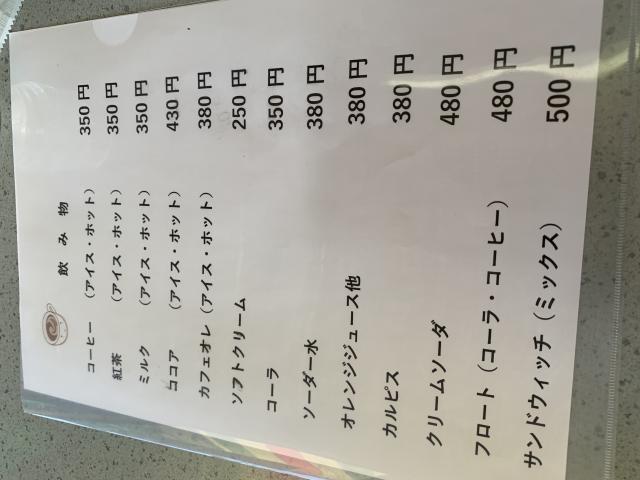 飲み物
コーヒー （アイス・ホット） 350円
紅茶 （アイス・ホット） 350円
ミルク （アイス・ホット） 350円
ココア （アイス・ホット） 430円
カフェオレ（アイス・ホット） 380円
ソフトクリーム 250円
コーラ 350円
ソーダー水 380円
オレンジジュース他 380円
カルピス 380円
クリームソーダ 480円
フロート（コーラ・コーヒー） 480円
サンドウィッチ（ミックス） 500円